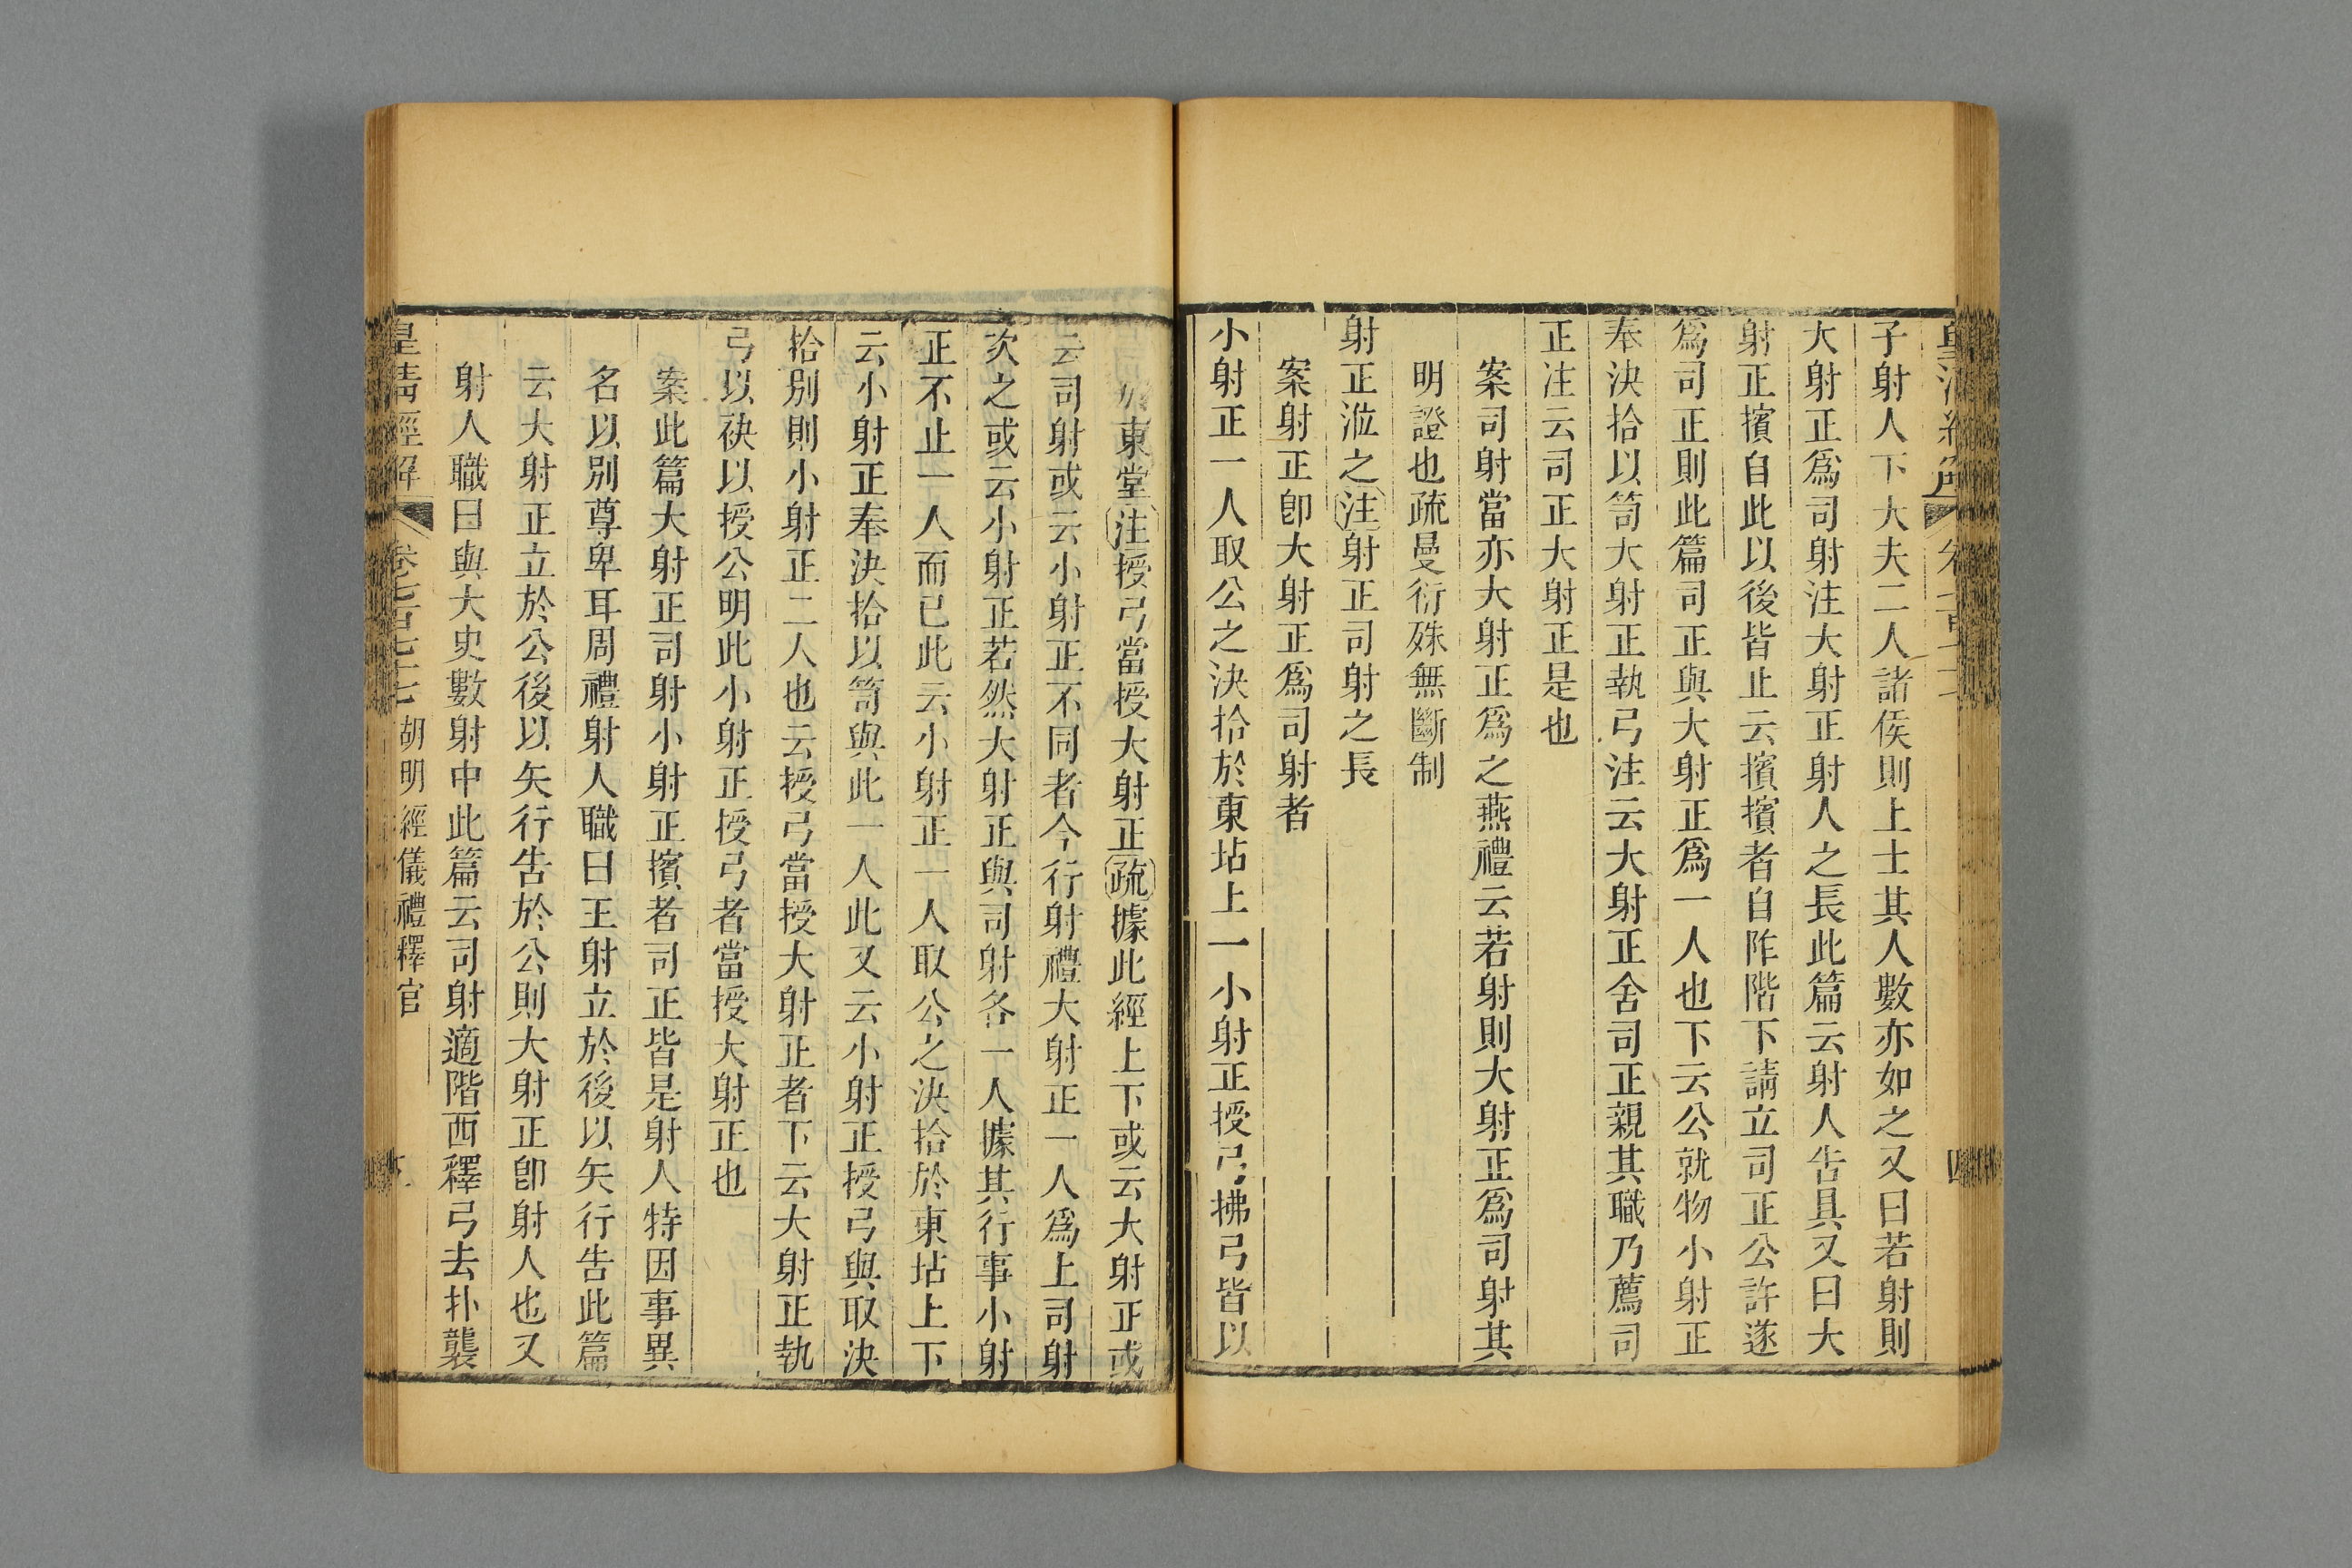 子射人下大夫二人諸侯則上士其人數亦如之又曰若射則
大射正爲司射注大射正射人之長此篇云射人告具又曰大
射正擯自此以後皆止云擯擯者自阼階下請立司正公許遂
爲司正則此篇司正與大射正爲一人也下云公就物小射正
奉決拾以笥大射正執弓注云大射正舍司正親其職乃薦司
正注云司正大射正是也
案司射當亦大射正爲之燕禮云若射則大射正爲司射其
明證也疏曼衍殊無斷制
射正涖之注射正司射之長
案射正卽大射正爲司射者
小射正一人取公之決拾於東坫上一小射正授弓拂弓皆以
東堂注授弓當授大射正疏據此經上下或云大射正或
云司射或云小射正不同者今行射禮大射正一人爲上司射
次之或云小射正若然大射正與司射各一人據其行事小射
正不止一人而已此云小射正一人取公之決拾於東坫上下
云小射正奉決拾以笥與此一人此又云小射正授弓與取決
拾别則小射正二人也云授弓當授大射正者下云大射正執
弓以袂以授公明此小射正授弓者當授大射正也
案此篇大射正司射小射正擯者司正皆是射人特因事異
名以别尊卑耳周禮射人職曰王射立於後以矢行告此篇
云大射正立於公後以矢行告於公則大射正卽射人也又
射人職曰與大史數射中此篇云司射適階西釋弓去扑襲
皇淸經解 卷七百七十七 胡明經儀禮釋官